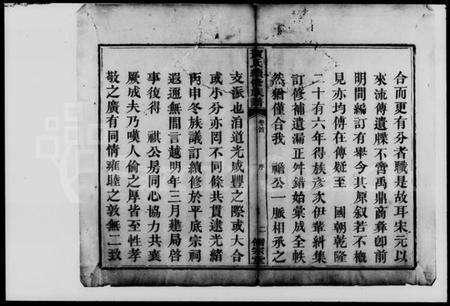 合而更有分者職是故耳宋元以
來流傳遺牒不啻禹鼎商彝卽前
明間編訂有舉今其原叙若不概
見亦均傅在傳疑至 國朝乾隆
二十有六年得族彥次伊輩緝集
訂修補遺漏正舛錯始彙成全帙
然猶僅合我 瞻公一脈相承之
氏續修族譜
卷首
序
二
支派也洎道光咸豐之際或大合
或小分亦罔不同條共貫逮光緒
丙申冬族議訂續修於平底宗祠
遐邇無間言越明年三月建局啓
事復得 祺公房同心協力共襄
厥成夫乃嘆人倫之厚皆至性孝
敬之廣有同情雍睦之敦無二致